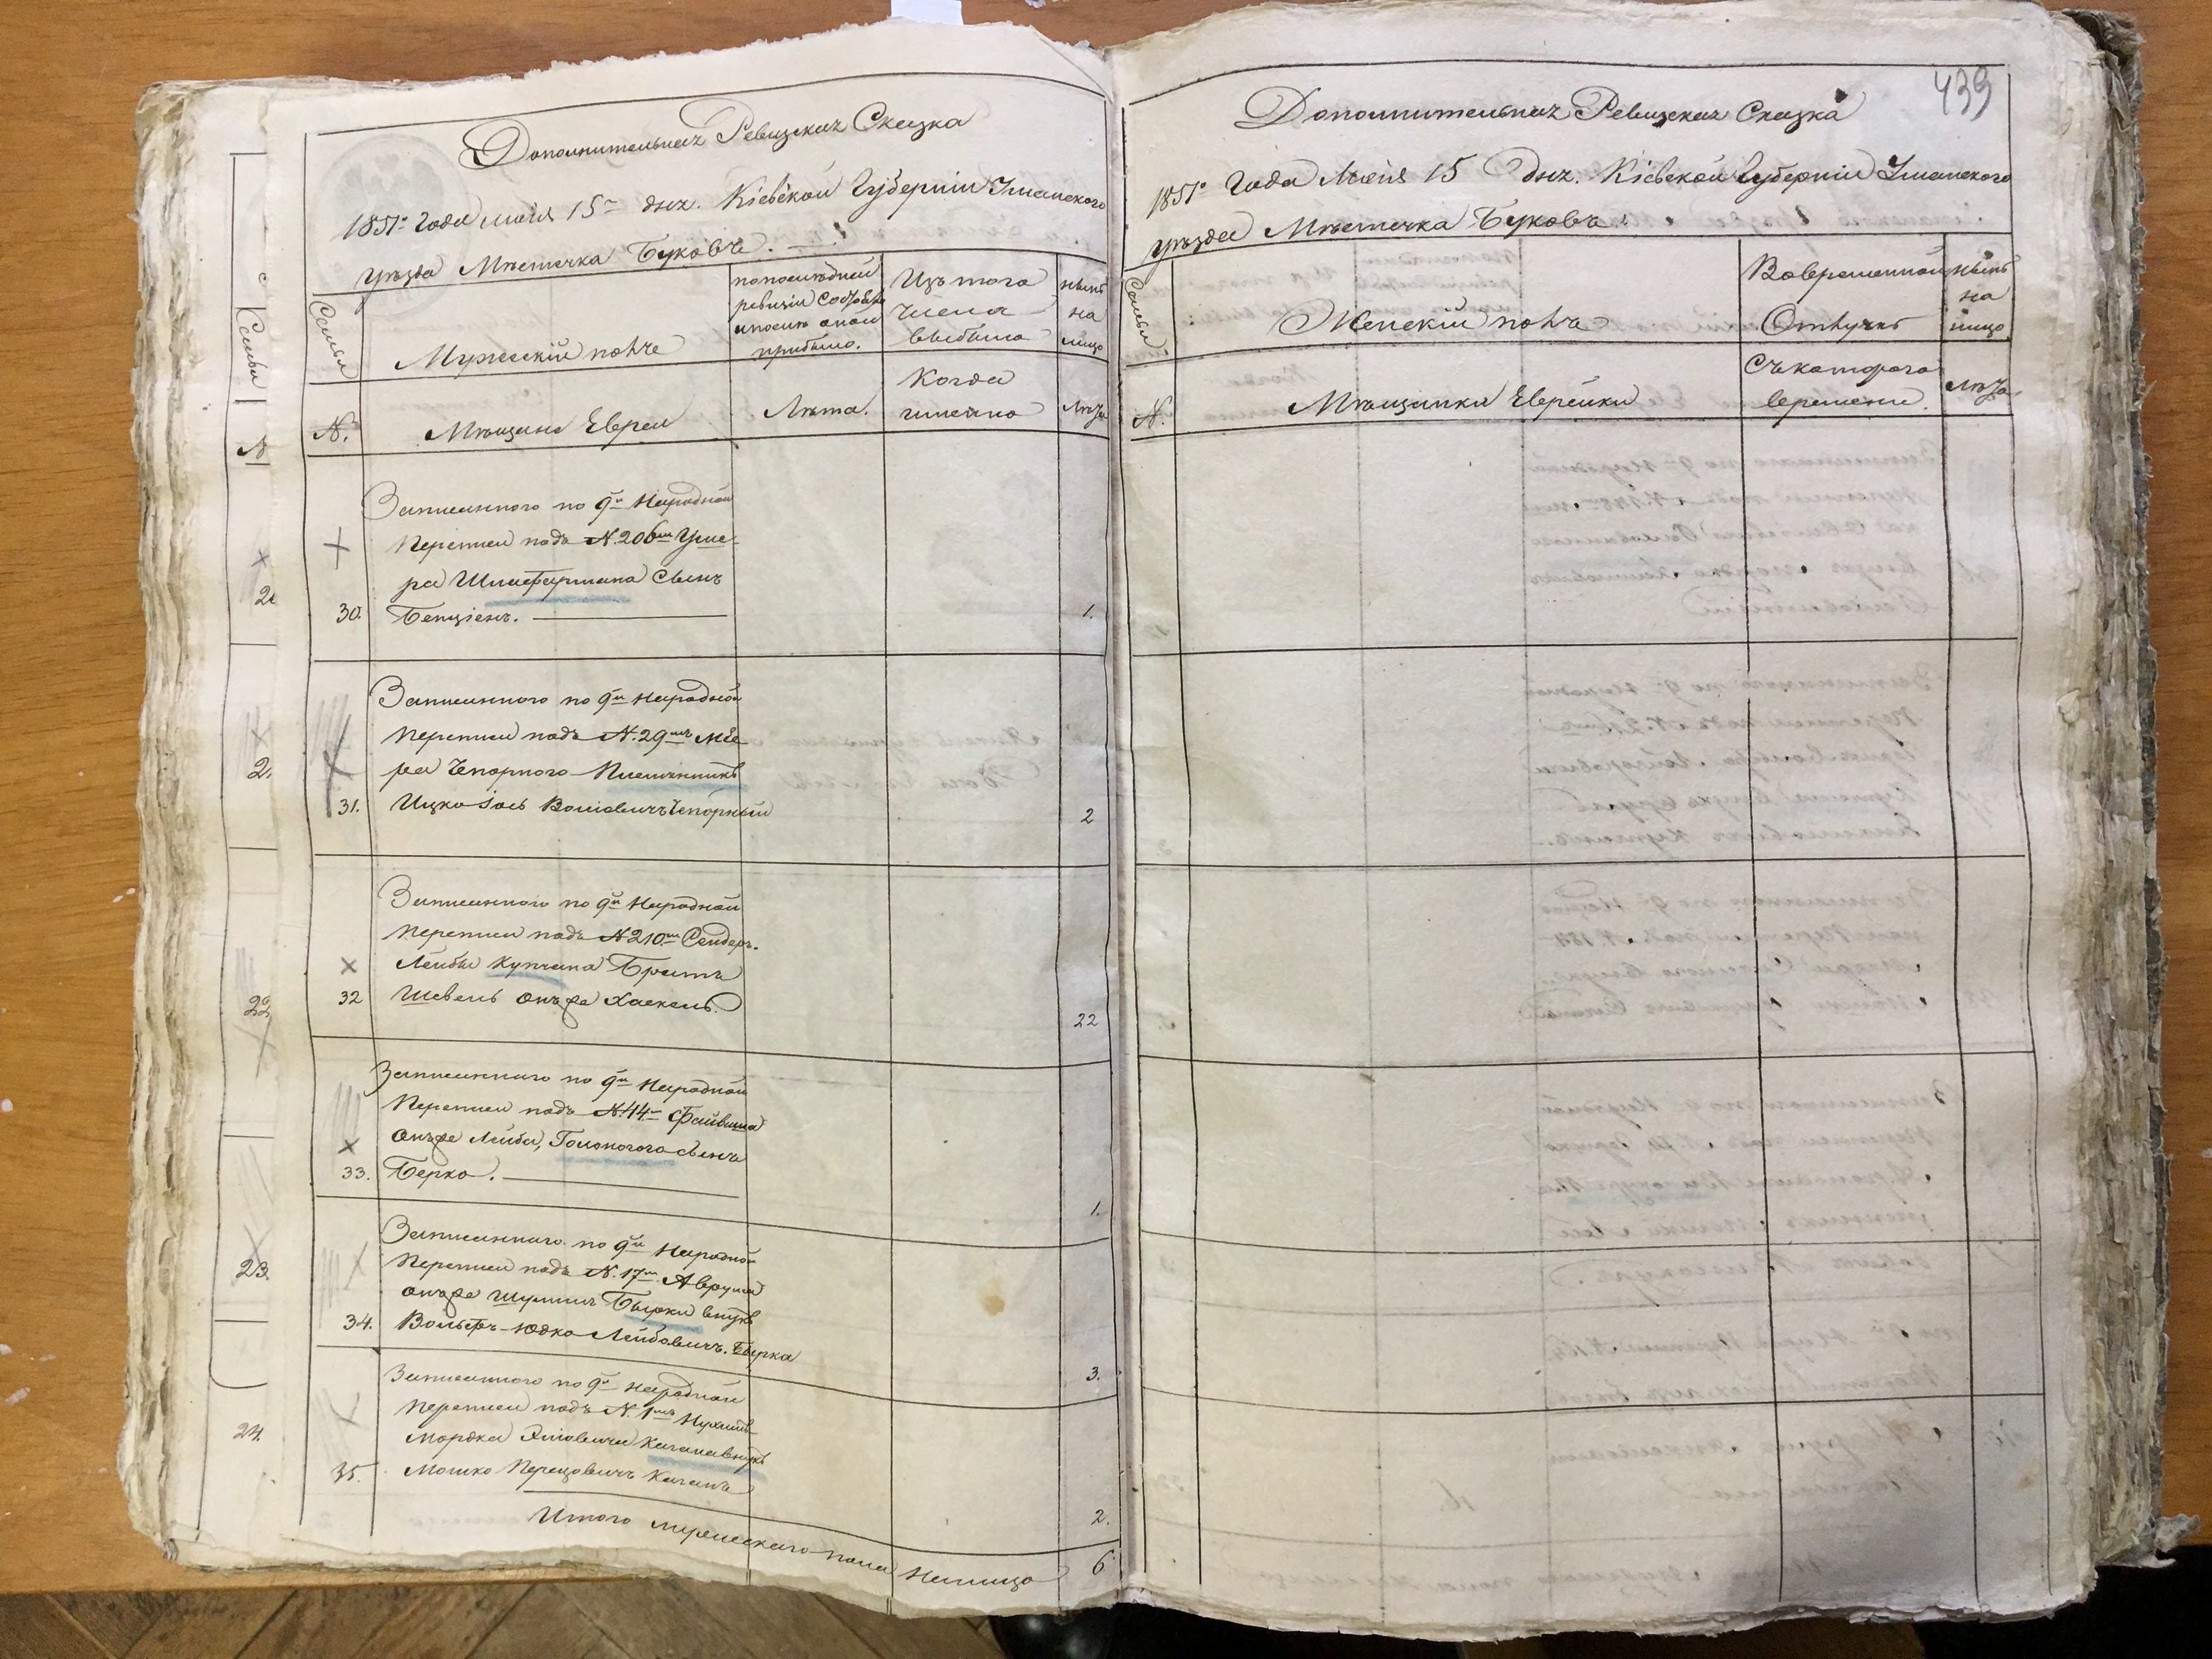 Дополнительная Ревизская Сказка
1851го Года Маія 15го дня. Кіевской Губерніи Уманского
уезда Местечка Буковъ.
Семьи
Мужескій полъ
по последней
ревизіи состояло
и после оной
прибыло.
Изъ того
числа
выбыло
ныне
на
лицо
№.
Мещане Евреи
Лета.
Когда
имянно
Лета
Записанного по 9й Народной
переписи подъ №.206мъ Уше-
ра Шлафермана Сынъ
30. Бенціенъ. 1.
Записанного по 9й Народной
переписи подъ №.29мъ Мее
ра Чепорного Племянникъ
31. Ицко Іось Волковичъ Чепорный 2
Записанного по 9й Народной
переписи подъ №210мъ Сендеръ-
Лейбы Купчика Братъ
32 Шевель онъ же Хаскель. 22
Записанного по 9й Народной
переписи подъ №.44мъ Файвиша
онъ же Лейба, Голоногого сынъ
33. Берко. 1.
Записанного по 9й Народной
Переписи подъ №.17мъ Аврума
онъ же Шулимъ Бырки внукъ
34. Вольфъ-Юдко Лейбовичъ. Бырка 3.
Записанного по 9й Народной
переписи подъ №.1мъ Нухимъ
Мордка Качана внукъ
35. Мошко Перецовичъ Качанъ 2.
Итого мужескаго пола Налицо 6
Семьи
№
2
2.
22.
23.
24.
439
Дополнительная Ревизская Сказка
1851го Года Маія 15 дня. Кіевской Губерніи Уманского
уезда Местечка Буковъ.
Семьи
Женскій полъ
Во временной
Отлучке
ныне
на
лицо
№.
Мещанки Еврейки
Съ которого
времени.
Лета